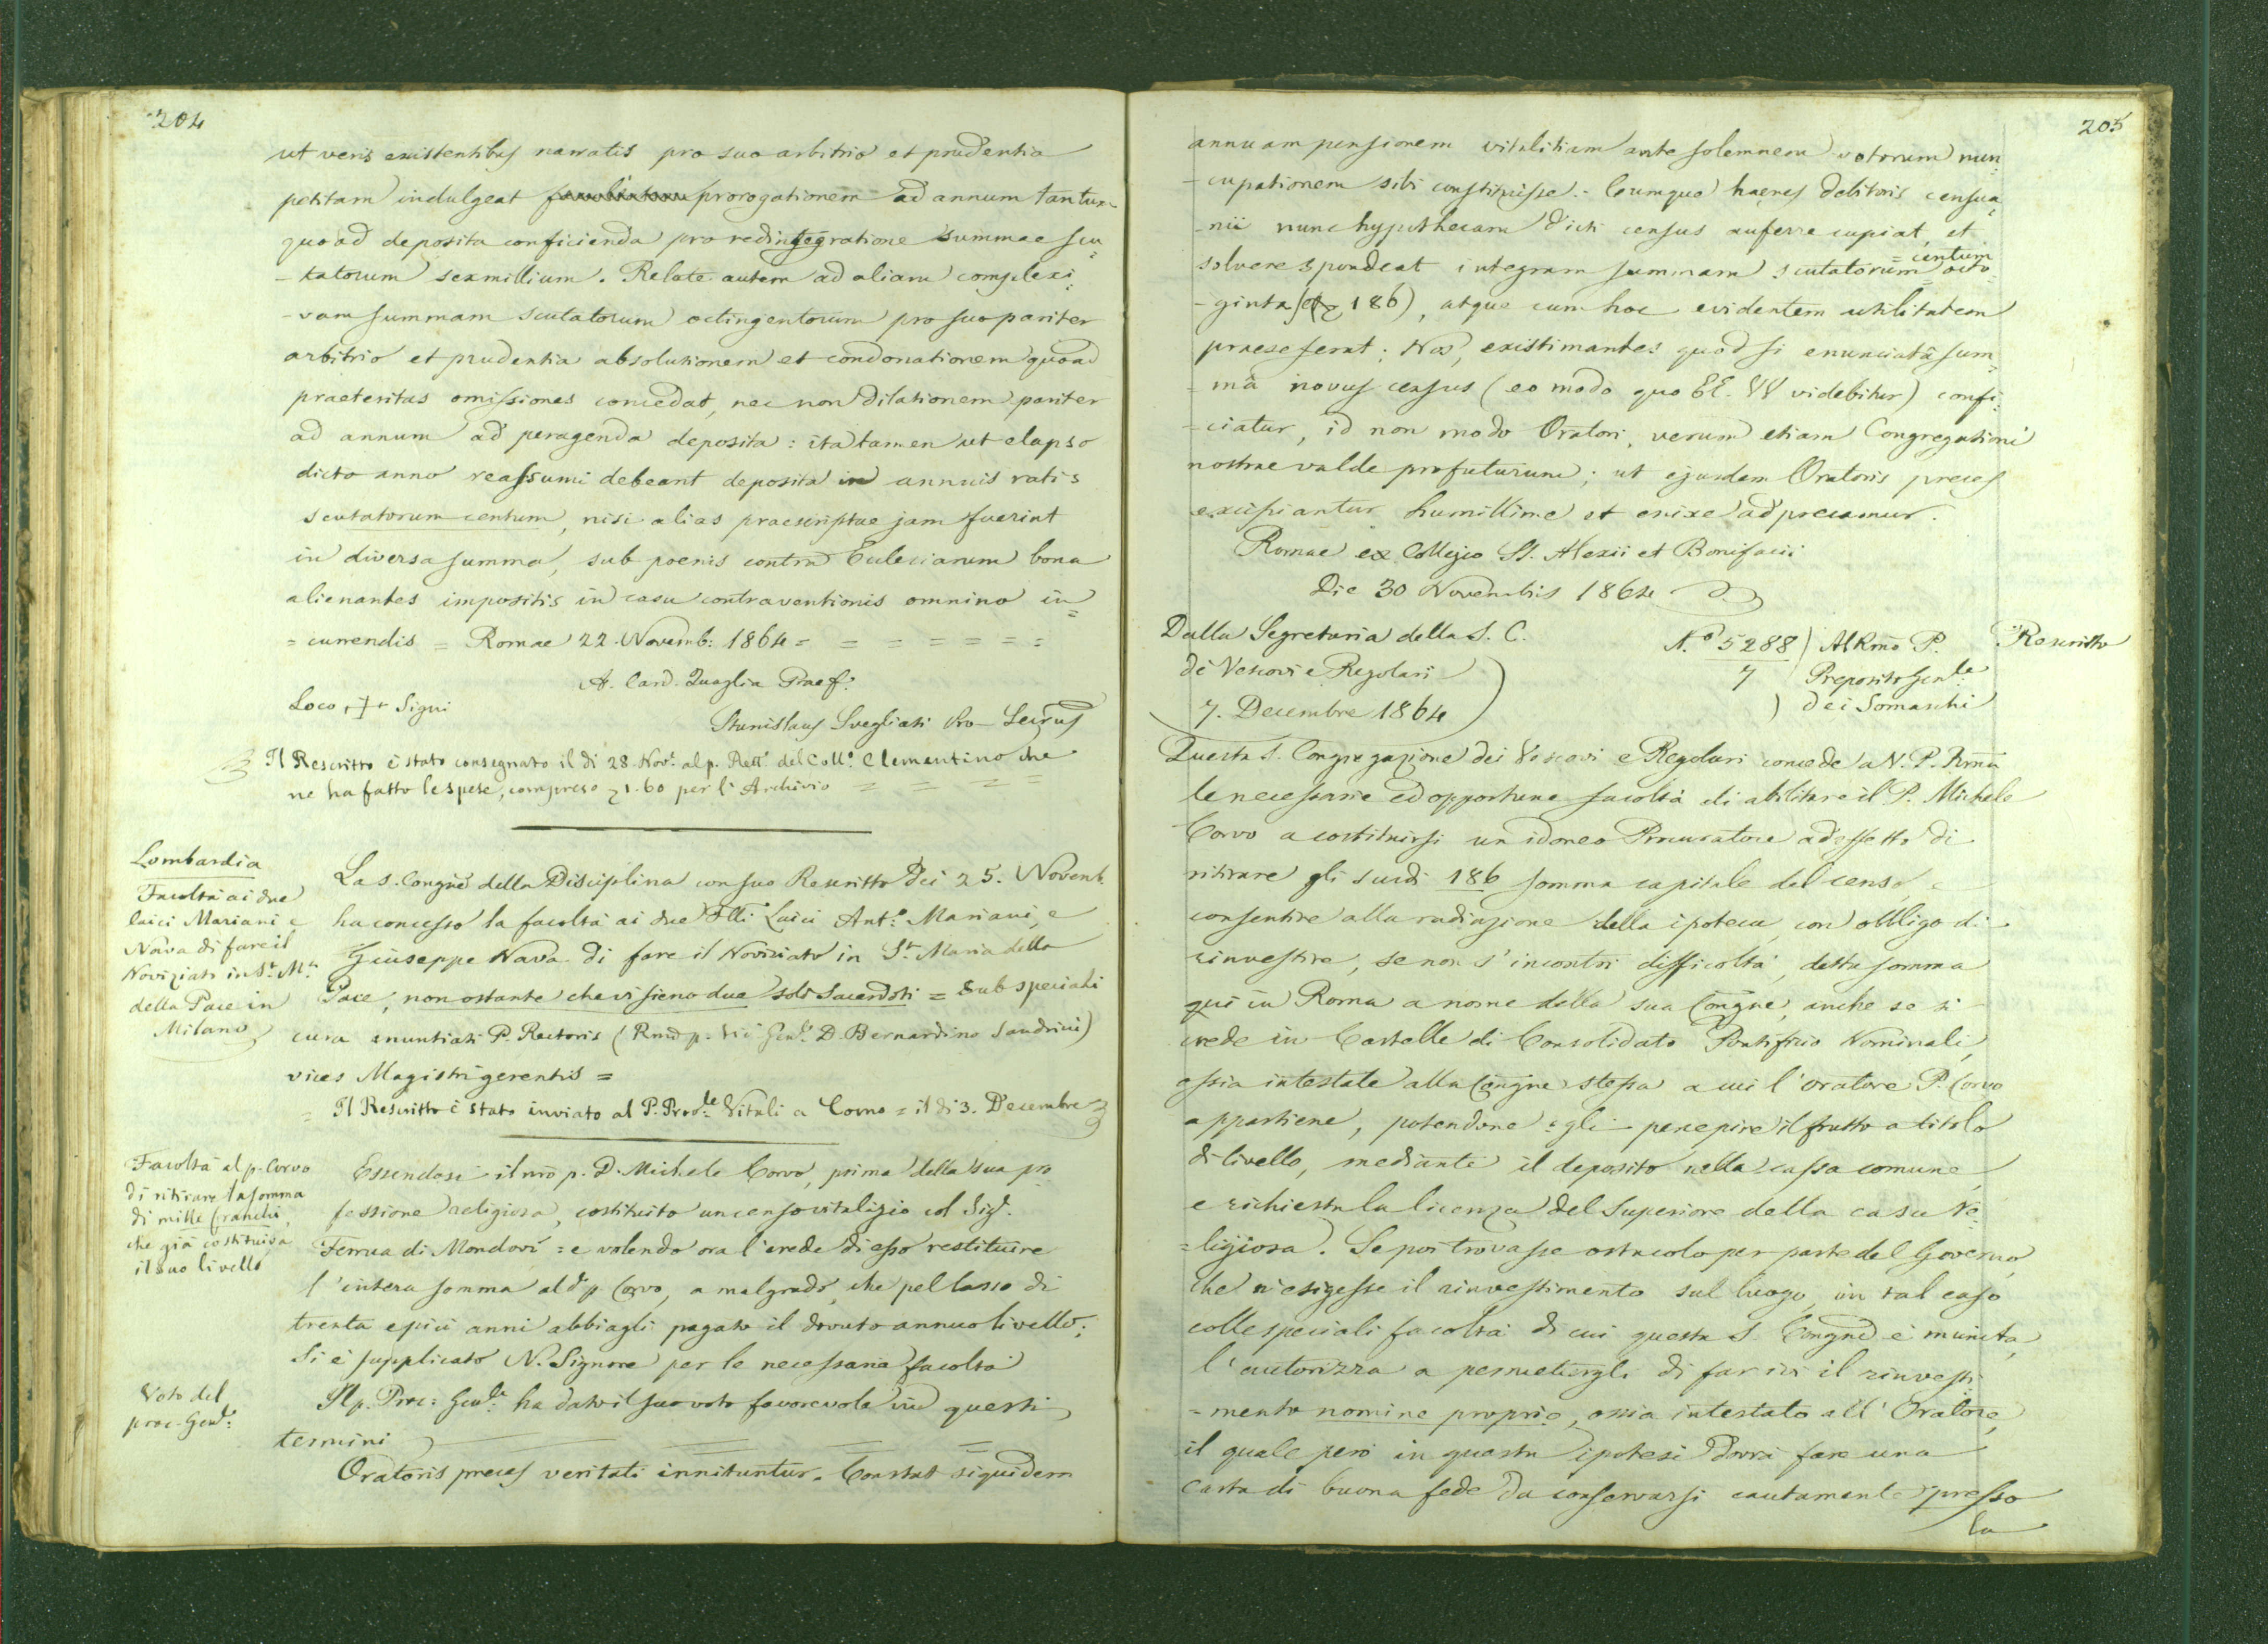 204
ut veris existentibus narratis pro suo arbitrio et prudentia
petitam indulgeat prorogationem ad annum tantum
quoad deposita conficienda pro redintegratione summae scu
-tatorum sexmillium. Relate autem ad aliam complexi
-vam summam scutatorum octingentorum pro suo pariter
arbitrio et prudentia absolutionem et condonationem quoad
praeteritas omissiones concedat, nec non dilationem pariter
ad annum ad peragenda deposita: ita tamen ut elapso
dicto anno reassumi debeant deposita in annuis ratis
scutatorum centum, nisi alias praescriptae jam fuerint
in diversa summa, sub poenis contra Eclesiarum bona
alienantes impositis in casu contraventionis omnino in=
=currendis = Romae 22. Novemb: 1864 = = = = = = =
A. Card. Quaglia Praef:
Loco + Signi
Stanislaus Svegliati Pro-Secrus
Il Rescritto è stato consegnato il dì 28 Nov.e al p. Rett.e del Coll.o Clementino che
ne ha fatto le spese, compreso 1.60 per l'Archivio = = = =
Lombardia
Facoltà ai due
laici Mariani e
Nava di fare il
Noviziato in S.ta M.a
della Pace in
Milano
La S. Congne della Disciplina con suo Rescritto dei 25. Novemb.
ha concesso la facoltà ai due Flli Laici Ant.o Mariani, e
Giuseppe Nava di fare il Noviziato in S.ta Maria della
Pace, non ostante che vi sieno due soli Sacerdoti = Sub speciali
cura enuntiati P. Rectoris (Rmo p. Vic. Gen.le D. Bernardino Sandrini)
vices Magistri gerentis =
= Il Rescritto è stato inviato al P. Prov.le Vitali a Como = il dì 3. Decembre
Facoltà al p. Corvo
di ritirare la somma
di mille franchi,
che già costituiva
il suo livello
Essendosi il nro p. D. Michele Corvo, prima della sua pro
fessione religiosa, costituito un censo vitalizio col Sig.r
Ferrua di Mondovì = e volendo ora l'erede di esso restituire
l'intera somma al d.o p. Corvo, a malgrado, che pel lasso di
trenta e più anni abbiagli pagato il dovuto annuo livello;
Si è supplicato N. Signore per le necessaria facoltà
Voto del
proc. Gen.le:
Il p. Proc: Gen.le ha dato il suo voto favorevole in questi
termini
Oratoris preces veritati innituntur. Constat siquidem
205
annuam pensionem vitalitiam ante solemnem votorum nun
-cupationem sibi constituisse.- Cumque haeres debitoris censua
-rii nunc hypothecam dicti census auferre cupiat, et
solvere spondeat integram summam scutatorum =centum octo
-ginta sex 186), atque cum hoc evidentem utilitatem
praeseferat; Nos, existimantes quod si enunciatâ sum
=mâ novus census (eo modo quo EE. VV videbitur) confi
-ciatur, id non modo Oratori, verum etiam Congregationi
nostrae valde profuturum; ut ejusdem Oratoris preces
excipiantur humillime et enixe adprecamur.
Romae ex Collegio SS. Alexii et Bonifacii
Die 30 Novembris 1864
Dalla Segretaria della S. C.
de Vescovi e Regolari
7. Decembre 1864
N.o 5288
7
Al Rmo P.
Preposito Gen.le
dei Somaschi
Rescritto
Questa S. Congregazione dei Vescovi e Regolari concede a N. P. Rma
le necessarie ed opportune facoltà di abilitare il P. Michele
Corvo a costituirsi un idoneo Procuratore ad effetto di
ritirare gli scudi 186 somma capitale del censo, e
consentire alla radiazione della ipoteca, con obbligo di
rinvestire, se non s'incontri difficoltà, detta somma
quì in Roma a nome della sua Congne, anche se si
crede in Cartelle di Consolidato Pontificio Nominali,
ossia intestate alla Congne stessa a cui l'oratore P. Corvo
appartiene, potendone egli percepire il frutto a titolo
di livello, mediante il deposito nella cassa comune,
e richiesta la licenza del Superiore della casa Re=
=ligiosa. Se poi trovasse ostacolo per parte del Governo,
che n'esigesse il rinvestimento sul luogo, in tal caso
colle speciali facoltà di cui questa S. Congne è munita,
l'autorizza a permettergli di far ivi il rinvesti
=mento nomine proprio, ossia intestato all'Oratore,
il quale però in questa ipotesi dovrà fare una
carta di buona fede da conservarsi cautamente presso
la